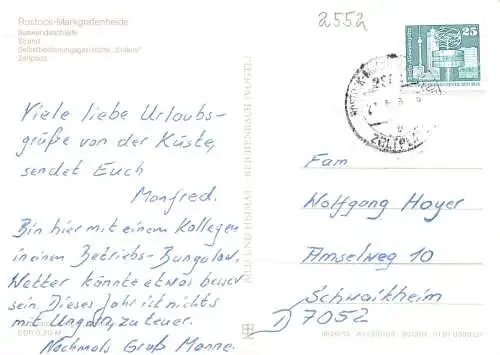 Rostock-Markgrafenheide
Buswendeschleife
Strand
Selbstbedienungsgaststätte
Zeltplatz
2552
25
Viele liebe Urlaubs-
grüße von der Küste,
sendet Euch
Manfred.
Bin hier mit einem Kollegen
in einem Betriebs-Bungalow.
Wetter könnte etwas besser
sein. Dieses Jahr ist nichts
mit Ungarn, zu teuer.
Nochmals Gruß Manne.
BILD UND HEIMAT REICHENBACH (VOGTL)
ZELTPL
Fam
Wolfgang Hoyer
Amselweg 10
Schwaikheim
D 7052